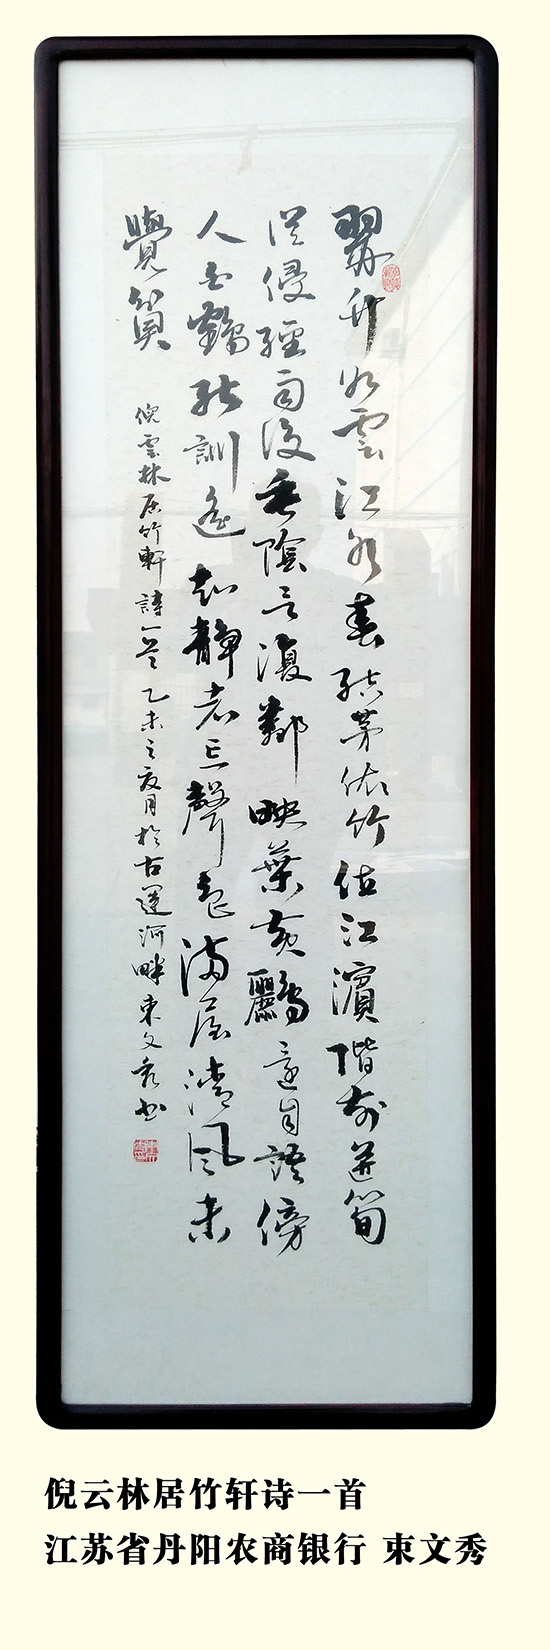 翠竹如雲江水春結茅依竹住江濱階前迸筍
從侵徑雨後垂陰覆鄰映葉黃鸝還自語傍
人白鶴能馴遙知靜者忘聲色滿屋清風未
覺貧
倪雲林居竹軒詩一首 乙未之夏月於古運河畔束文秀書
倪云林居竹轩诗一首
江苏省丹阳农商银行 束文秀